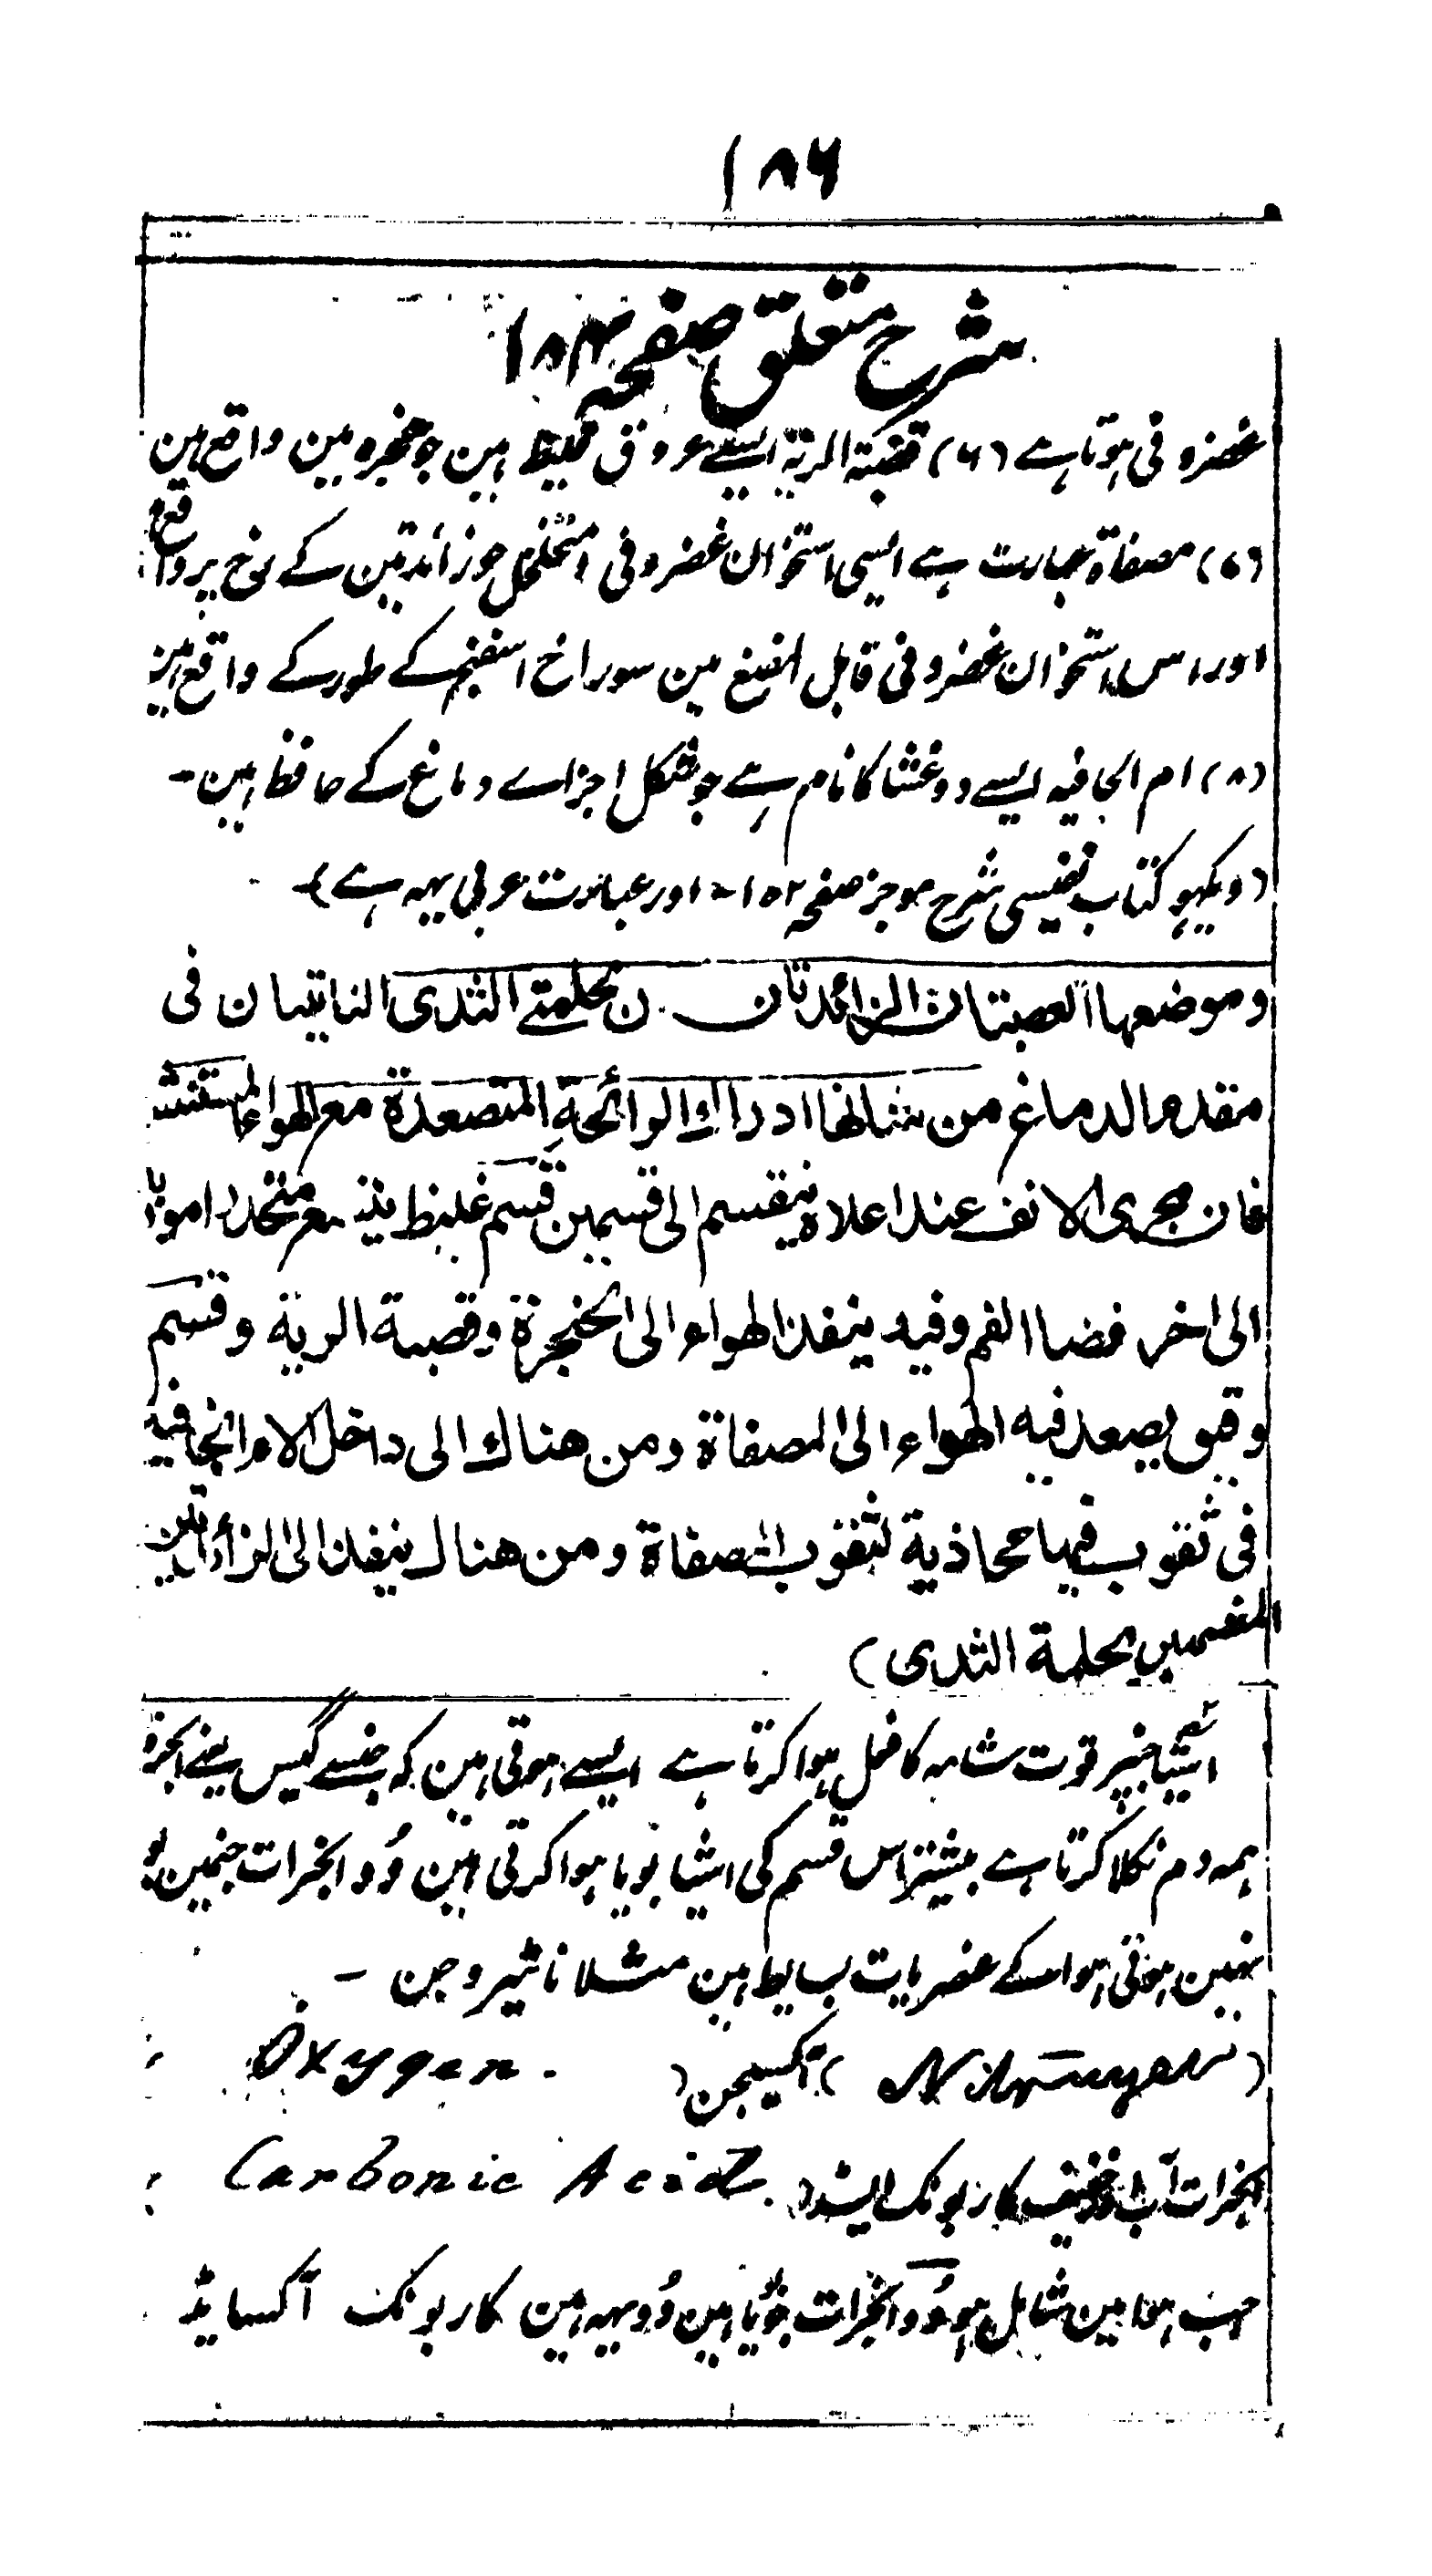 ۱۸۶
شرح متعلق صفحہ ۱۸۴
غضروفی ہوتا ہے (۶) قصبۃ الریۃ ایسے عروق غلیظ ہین جو حنجرہ مین واقع ہین
(۷) مصفاۃ عبارت ہے ایسی استخوان غضروفی متخلخل جو زائدتین کے رخ پر واقع
اور اس استخوان غضروفی قابل مین سوراخ اسفنج کے طور کے واقع ہین
(۸) ام الجافیہ ایسے دو غشا کا نام ہے جو شکل اجزاے دماغ کے حافظ ہین -
(دیکہو کتاب نفیسی شرح موجز صفحہ ۱۵۲ - اور عبارت عربی یہہ ہے)
وموضعها العصبتان الزائدتان بحلمتے الثدی الناتیتان فی
مقدم الدماغ من شانها ادراك الرائحة المتصعدة مع الهواء المستنشق
فان مجری الانف عند اعلاه ینقسم الی قسمین قسم غلیظ منحدر
الی اخر فضا الفم وفیه ینفذ الهواء الی الحنجرة وقصبة الریة وقسم
دقیق یصعد فیه الهواء الی المصفاة ومن هناك الی داخل الام الجافیه
فی ثقوب فیها محاذیة لثقوب المصفاة ومن هناك ینفذ الی الزائدتین
بحلمة الثدی)
اشیا جنپر قوت شامہ کا فعل ہوا کرتا ہے ایسے ہوتی ہین کہ جنسے گیس یعنے ابخرہ
ہمہ دم نکلا کرتا ہے بیشتر اس قسم کی اشیا بویا ہوا کرتی ہین وُہ ابخرات جنمین بو
نہین ہوتی ہوا کے عنصریات بسایط ہین مثلا نائٹیروجن -
(Nitrogen) آکسیجن (Oxygen.
ابخرات آب خفیف کاربونک ایسڈ (Carbonic Acid.
جب ہوا مین شامل ہو وُہ ابخرات جو بویا ہین وُہ یہہ ہین کاربونک آکسایڈ